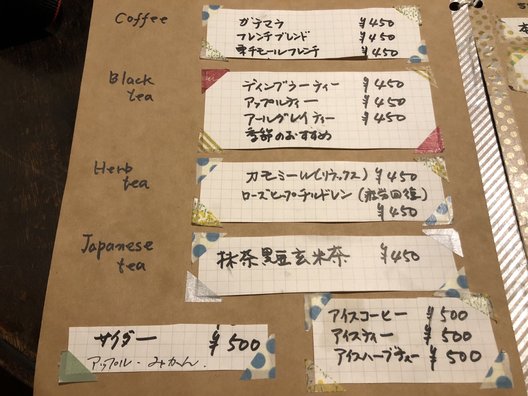 Coffee
ガテマラ ¥450
フレンチブレンド ¥450
東チモールフレンチ ¥450
Black
tea
ディンブラティー ¥450
アップルティー ¥450
アールグレイティー ¥450
季節のおすすめ
Herb
tea
カモミール(リラックス) ¥450
ローズヒップ・チルドレン (疲労回復)
¥450
Japanese
tea
抹茶黒豆玄米茶 ¥450
サイダー ¥500
アップル・みかん.
アイスコーヒー ¥500
アイスティー ¥500
アイスハーブティー ¥500